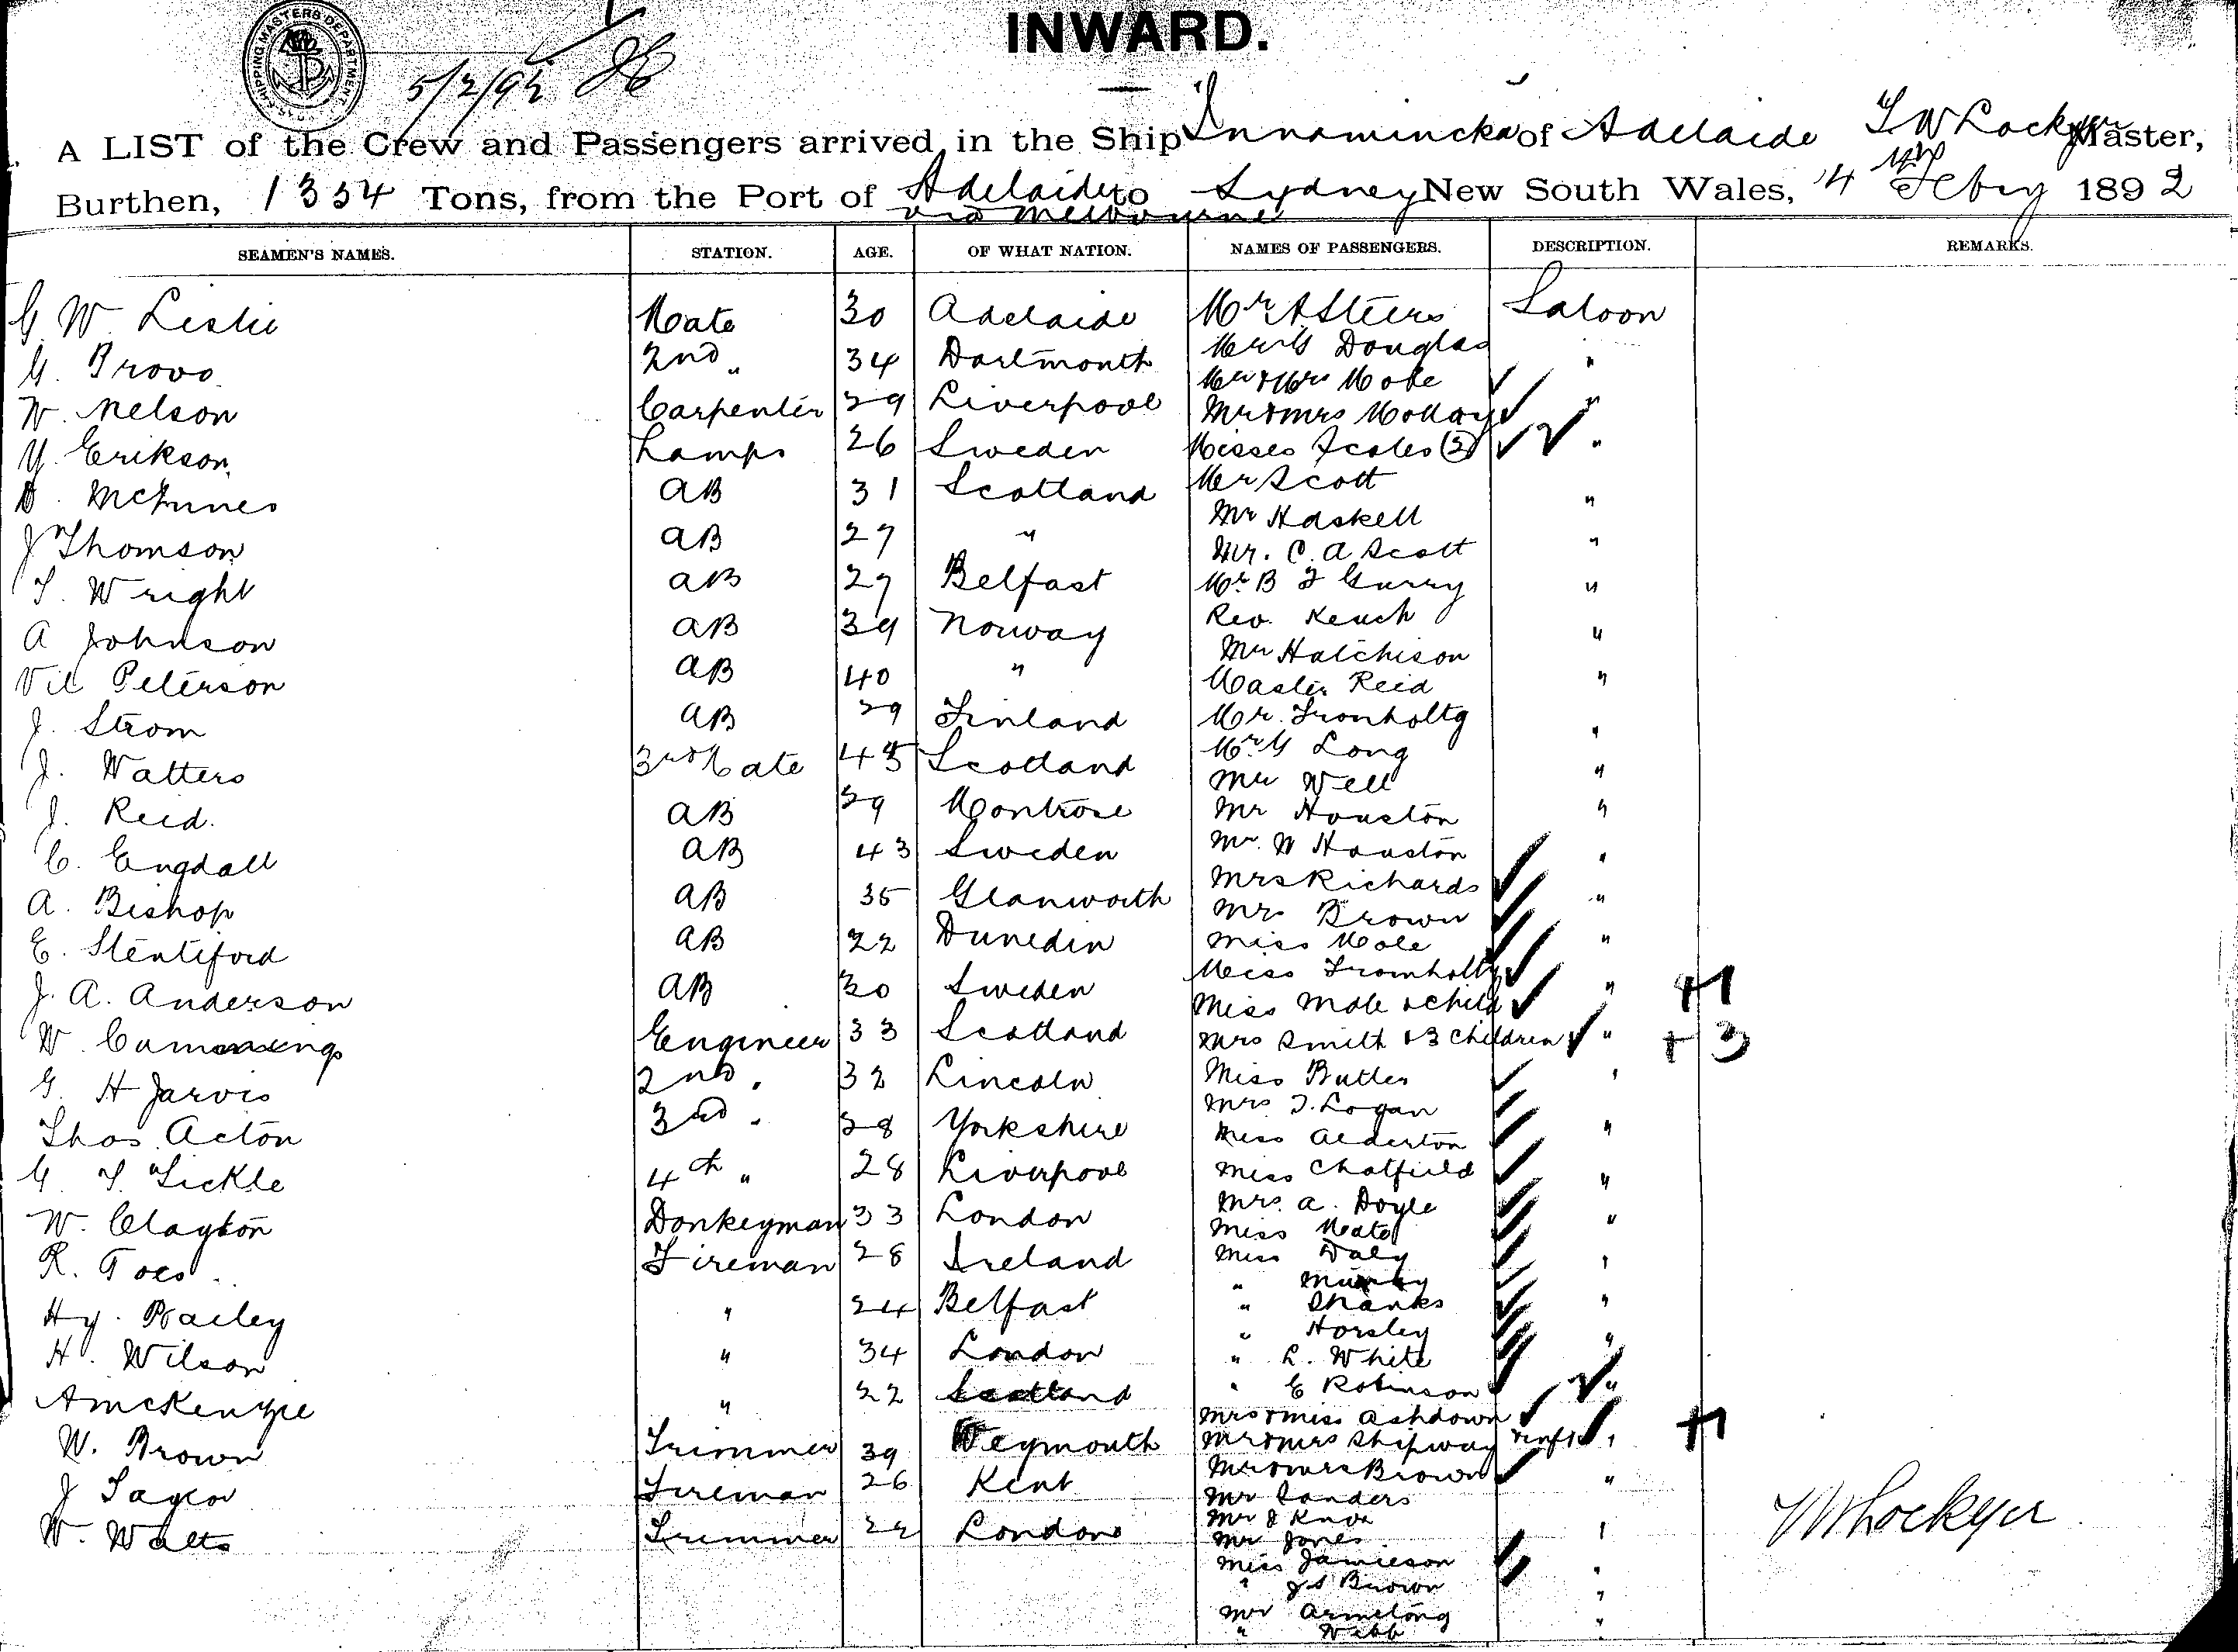 SHIPPING MASTERS DEPARTMENT
INWARD.
5/2/92
A LIST of the Crew and Passengers arrived in the Ship Innamincka of Adelaide T W Lockyer Master,
Burthen, 1354 Tons, from the Port of Adelaide to Sydney New South Wales, 4th Feby 1892
via Melbourne
SEAMEN'S NAMES. STATION. AGE. OF WHAT NATION. NAMES OF PASSENGERS. DESCRIPTION. REMARKS.
G W Leslie Mate 30 Adelaide Mr A Steers Saloon
G. Provo 2nd " 34 Dartmouth Mr G Douglas "
Mr & Mrs
W. Nelson Carpenter 29 Liverpool Mr & Mrs "
Y. Erikson Lamps 26 Sweden Misses Scales (2) "
D. McInnes AB 31 Scotland Mr Scott
Mr Haskell "
J Thomson AB 27 " Mr. C. A Scott "
T. Wright AB 27 Belfast Mr B F Gurry "
A Johnson AB 39 Norway Rev. Keach "
Mr Hutchison
Vil Peterson AB 40 " Master Reid "
J. Strom AB 29 Finland Mr. Tromholtz
J. Watters 3rd Mate 45 Scotland Mr G Long "
Mr Well "
J. Reid. AB 29 Montrose Mr Houston "
C. Engdall AB 43 Sweden Mr. W Houston "
Mrs Richards
A. Bishop AB 35 Glanworth Mr Brown "
E. Stentiford AB 22 Dunedin Miss Mole "
Miss Tromholtz
J. A. Anderson AB 30 Sweden Miss Mole & child " +1
W. Cummings Engineer 33 Scotland Mrs Smith & 3 children " +3
G. H Jarvis 2nd " 32 Lincoln Miss Butler "
Mrs J. Logan
Thos. Acton 3rd " 28 Yorkshire Miss Alderton "
G. T. Tickle 4th " 28 Liverpool Miss Chatfield "
W. Clayton Donkeyman 33 London Mrs. A. Doyle
Miss Mate "
R. Fireman 28 Ireland Miss Daly "
" Murphy
Hy. Bailey " 24 Belfast " Shanks "
" Horsley
H. Wilson " 34 London " L. White "
A McKenzie " 22 Scotland " E Robinson "
Mrs & Miss Ashdown
W. Brown Trimmer 39 Weymouth Mr & Mrs Shipway & inft " +1
Mr & Mrs Brown
J Taylor Fireman 26 Kent Mr Sanders "
Mr J Knox
W. Watts Trimmer 22 London Mr Jones "
Miss Jamieson "
" J S Brown "
Mr Armstrong "
" Webb "
T W Lockyer